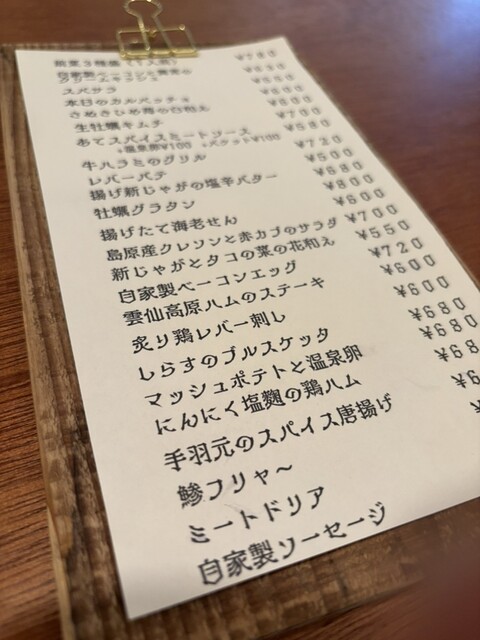 前菜3種盛(1人前) ¥780
自家製ベーコンと
クリームキッシュ
スパサラ
本日のカルパッチョ ¥800
生牡蠣キムチ
あてスパイスミートソース ¥580
+温泉卵¥100 +バケット¥100
牛ハラミのグリル ¥720
レバーパテ ¥500
揚げ新じゃがの塩辛バター ¥680
牡蠣グラタン ¥800
揚げたて海老せん ¥600
島原産クレソンと赤カブのサラダ ¥700
新じゃがとタコの菜の花和え ¥550
自家製ベーコンエッグ ¥720
雲仙高原ハムのステーキ ¥600
炙り鶏レバー刺し ¥600
しらすのブルスケッタ ¥680
マッシュポテトと温泉卵 ¥680
にんにく塩麴の鶏ハム ¥68
手羽元のスパイス唐揚げ
鯵フリャ〜
ミートドリア
自家製ソーセージ